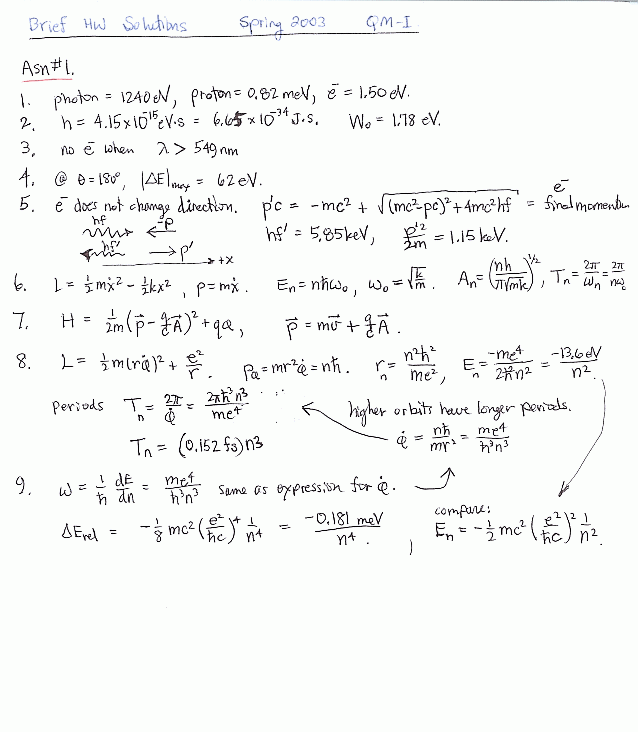 Brief HW Solutions Spring 2003 QM-I
Asn#1.
1. photon = 1240 eV, proton = 0.82 meV, e⁻ = 1.50 eV.
2. h = 4.15×10⁻¹⁵ eV·s = 6.65 × 10⁻³⁴ J·s. W₀ = 1.78 eV.
3. no e⁻ when λ > 549 nm
4. @ θ = 180°, |ΔE|max = 62 eV.
5. e⁻ does not change direction. p'c = -mc² + √((mc²-pc)² + 4mc²hf) = e⁻ final momentum
hf ←p
hf' = 5.85 keV, p'²/2m = 1.15 keV.
hf' → p'
→ +x
6. L = ½mẋ² - ½kx², p = mẋ. Eₙ = nħω₀, ω₀ = √(k/m). Aₙ = (nh/π√(mk))^½, Tₙ = 2π/ωₙ = 2π/nω꜀
7. H = 1/2m (p⃗ - q/c A⃗)² + qφ, p⃗ = mv⃗ + q/c A⃗.
8. L = ½m(rφ̇)² + e²/r. pφ = mr²φ̇ = nħ. rₙ = n²ħ²/me², Eₙ = -me⁴/2ħ²n² = -13.6 eV/n².
Periods Tₙ = 2π/φ̇ = 2πħ³n³/me⁴ higher orbits have longer periods.
Tₙ = (0.152 fs)n³ φ̇ = nħ/mr² = me⁴/ħ³n³
9. ω = 1/ħ dE/dn = me⁴/ħ³n³ same as expression for φ̇.
compare:
ΔErel = -⅛ mc² (e²/ħc)⁴ 1/n⁴ = -0.181 meV/n⁴. , Eₙ = -½ mc² (e²/ħc)² 1/n².